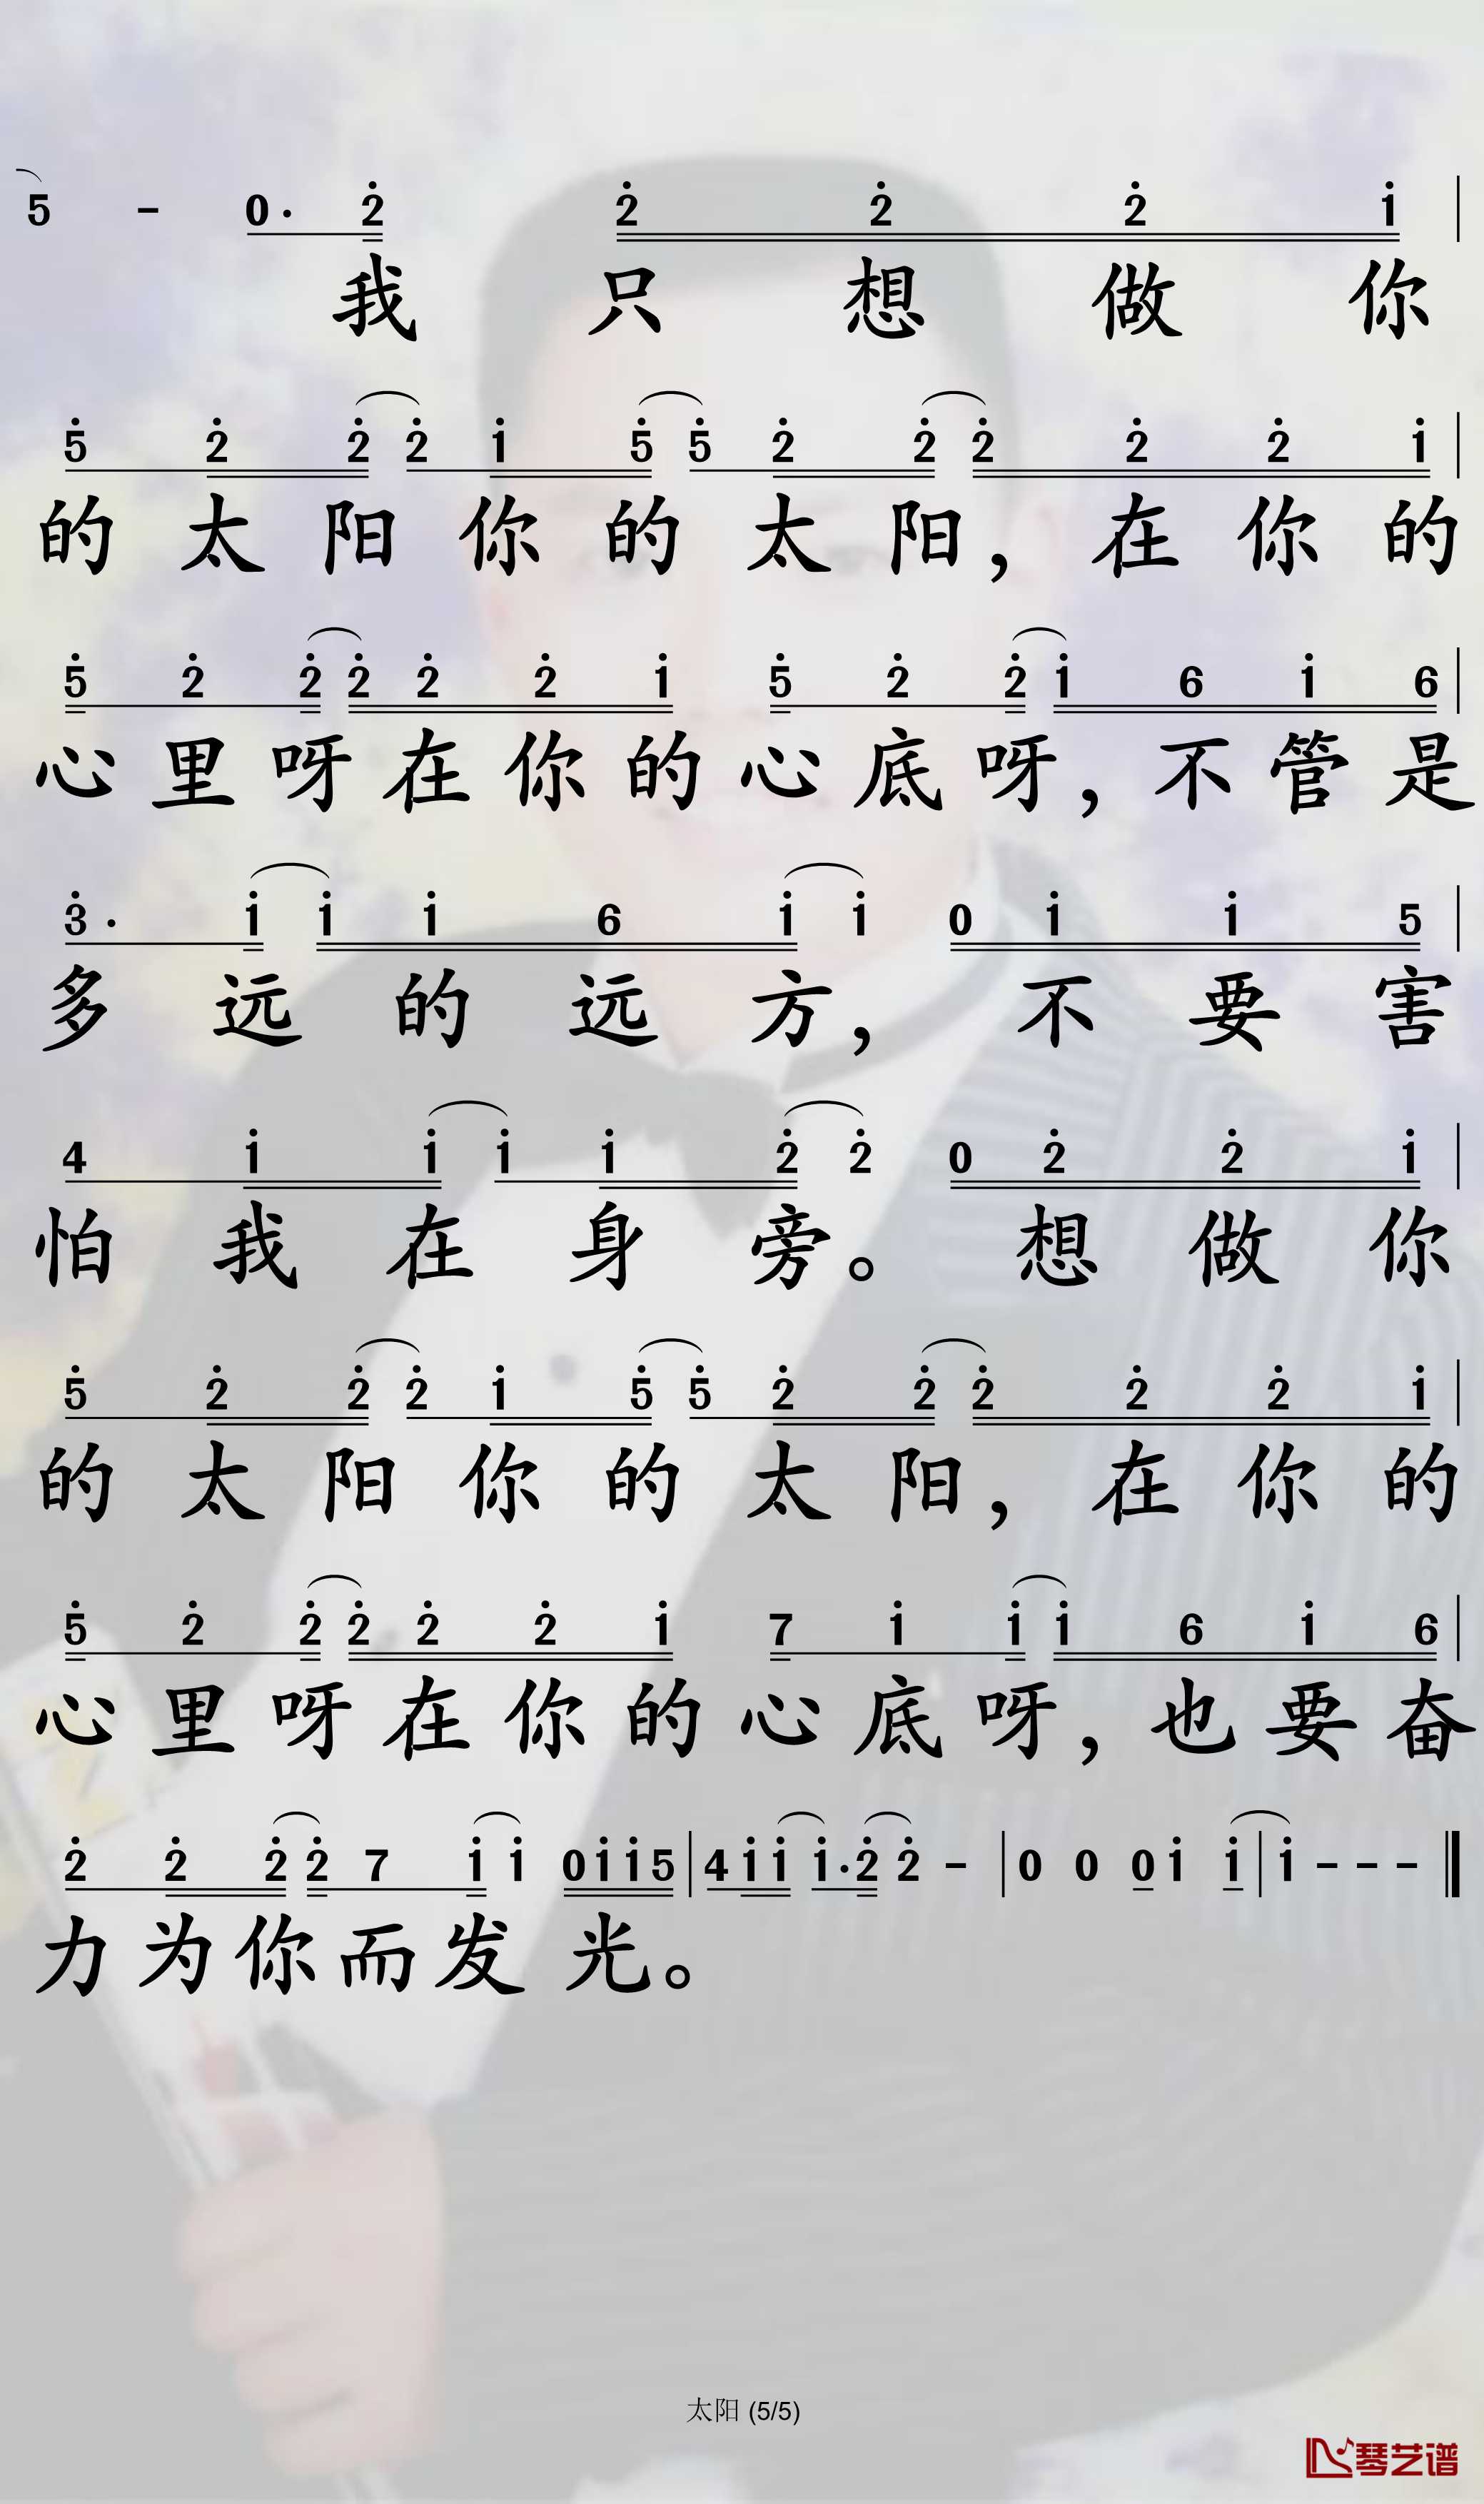 5 - 0· 2̇ 2̇ 2̇ 2̇ 1̇ |
我 只 想 做 你
5̇ 2̇ 2̇ 2̇ 1̇ 5̇ 5̇ 2̇ 2̇ 2̇ 2̇ 2̇ 1̇ |
的 太 阳 你 的 太 阳， 在 你 的
5̇ 2̇ 2̇ 2̇ 2̇ 2̇ 1̇ 5̇ 2̇ 2̇ 1̇ 6 1̇ 6 |
心 里 呀 在 你 的 心 底 呀， 不 管 是
3̇· 1̇ 1̇ 1̇ 6 1̇ 1̇ 0 1̇ 1̇ 5 |
多 远 的 远 方， 不 要 害
4 1̇ 1̇ 1̇ 1̇ 2̇ 2̇ 0 2̇ 2̇ 1̇ |
怕 我 在 身 旁。 想 做 你
5̇ 2̇ 2̇ 2̇ 1̇ 5̇ 5̇ 2̇ 2̇ 2̇ 2̇ 2̇ 1̇ |
的 太 阳 你 的 太 阳， 在 你 的
5̇ 2̇ 2̇ 2̇ 2̇ 2̇ 1̇ 7 1̇ 1̇ 1̇ 6 1̇ 6 |
心 里 呀 在 你 的 心 底 呀， 也 要 奋
2̇ 2̇ 2̇ 2̇ 7 1̇ 1̇ 0 1̇ 1̇ 5 | 4 1̇ 1̇ 1̇· 2̇ 2̇ - | 0 0 0 1̇ 1̇ | 1̇ - - - ‖
力 为 你 而 发 光。
太阳 (5/5)
琴艺谱